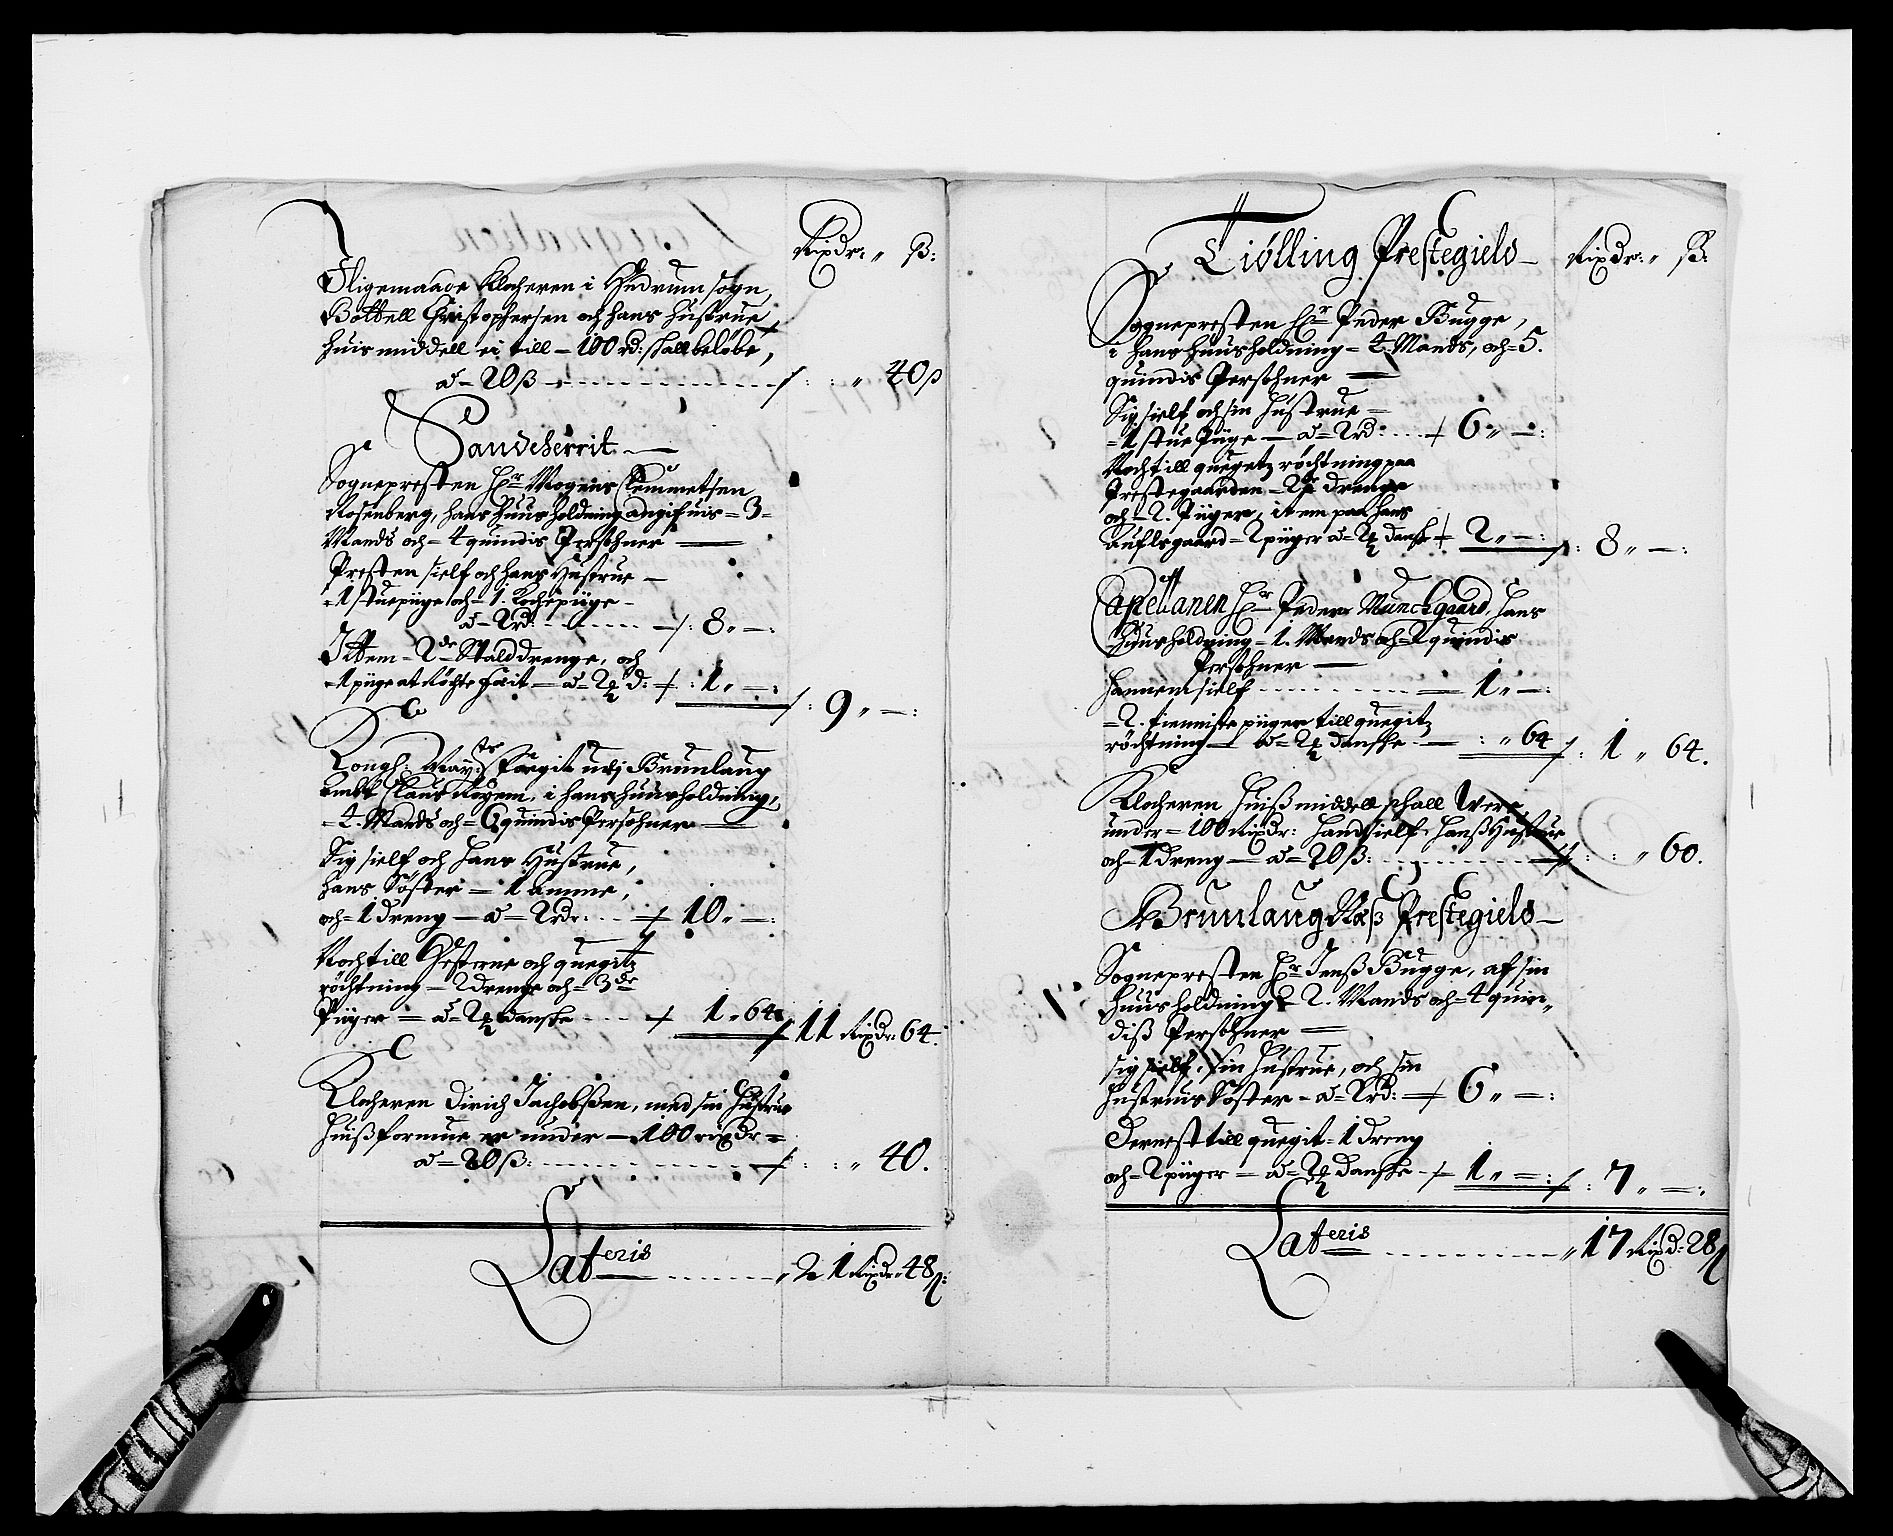 Rixdr: „ ß:
Sligemaade Klocheren i Hedrum sogn,
Bottell Christophersen och hans Hustrue,
huis middell ei till – 100 rd: skall beløbe,
a – 20 ß – – – – „ 40 ß
Sandeherrit –
Sognepresten Hr Mogens Clemmetsen
Rosenberg, hans huusholdning angifuis = 3 =
Mands och = 4 quindis Persohner –
Presten sielf och hans Hustrue –
= 1 stuepiige och = 1. Kochepiige –
a – 2 rd: – – – 8 „ – :
Ittem – 2de Stalddrenge, och
= 1 piige at Röchte Fæit – a – 2½ d: 1 „ – : 9 „ – :
Kongl: May:ts Fogit udj Brunlaug
ambt Claus Röyem, i hans huusholdning,
= 4. Mands och = 6 quindis Persohner –
Sig sielf och hans Hustrue,
hans Söster – 1 amme,
och = 1 dreng – a = 2 rdr: – – 10 „ – :
Noch till Hesterne och quegitz
röchtning – 2 drenge och = 3de
Piiger = a = 2½ danske – – 1 „ 64 11 Rixdr: 64.
Klocheren Dirich Jachobßen, med sin Hustrue
huiß formue er under – 100 rixdr =
a = 20 ß: – – – „ 40.
Lateris – – – „ 21 Rixdr „ 48 ß:
Tiölling Prestegield – Rixdr: „ ß:
Sognepresten Hr Peder Bugge,
i hans huusholdning = 4. Mands, och = 5.
quindis Persohner –
Sig sielf och sin Hustrue =
= 1 stue Piige – a = 2 rd: – – 6 „ – :
Noch till quegetz röchtning paa
Prestegaarden = 2de drenge
och – 2. Piiger, item paa hans
auflsgaard – 2 piiger a = 2½ danske 2 „ – : 8 „ – :
Capellanen Hr Peder Munchgaard, hans
Huusholdning = 1. Mands och = 2 quindis
Persohner –
Hannem sielf – – – 1 „ – :
= 2. tienniste piiger till quegitz
röchtning – a = 2½ danske – : „ 64 1 „ 64.
Klocheren huiß middell schall Were
under = 100 Rixdr: hand sielf hanß Hustrue
och = 1 dreng – a = 20 ß: – – „ 60.
Brunlaug Næß Prestegield –
Sognepresten Hr Jenß Bugge, af sin
Huusholdning = 2. Mands och = 4 quin„
diß Persohner –
sig sielf, sin Hustrue, och sin
Hustruis Söster – a = 2 rd: – 6 „ – :
Dernest till quegit = 1 dreng
och = 2 piiger – a = 2½ danske – 1 „ = : 7 „ – :
Lateris – – – „ 17 Rixd: 28 ß